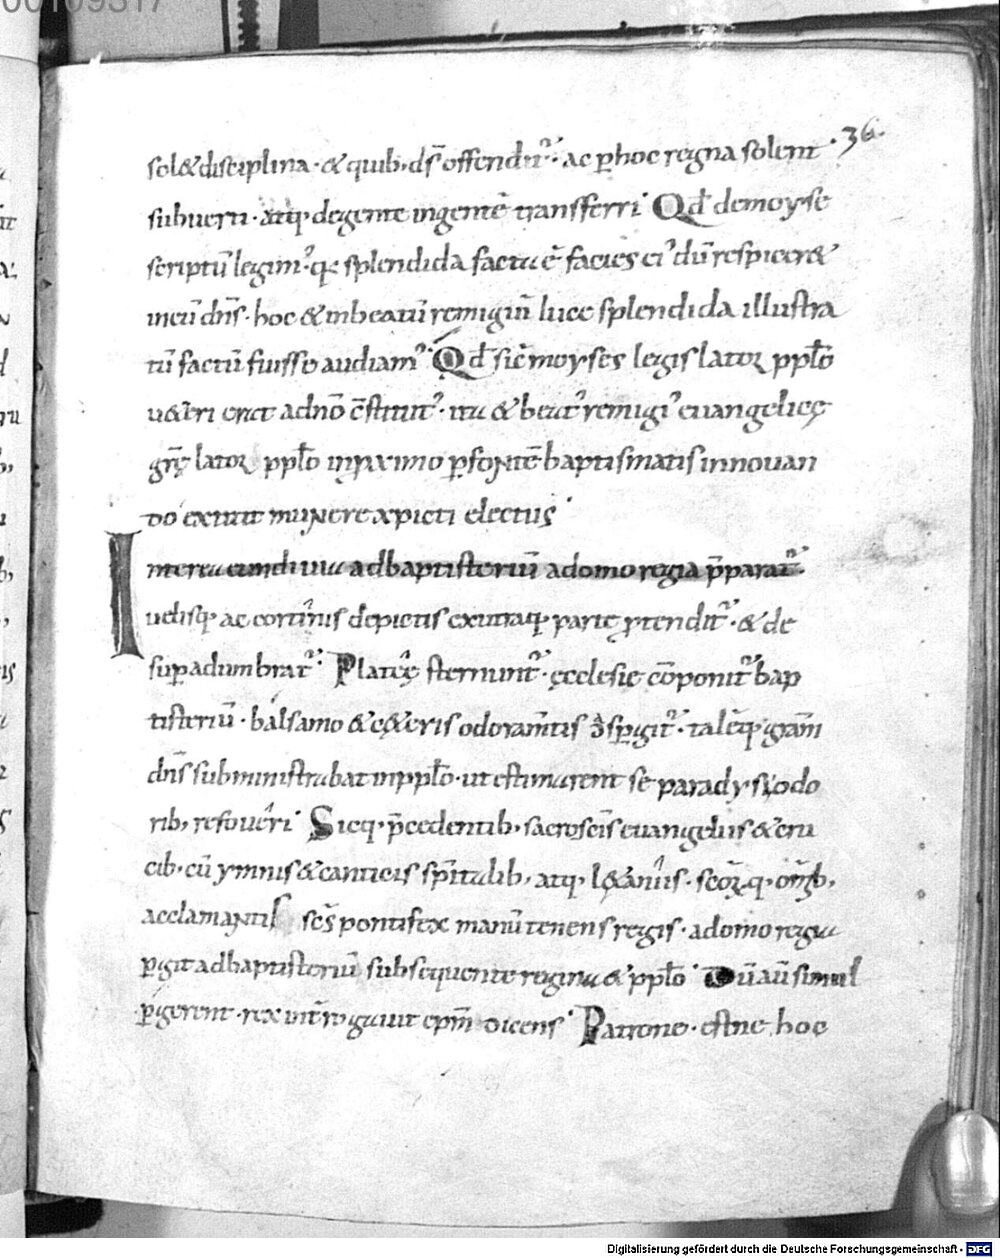 00109317
36.
sol&disciplina · & quib; ds̄ offendit᷒ · ac ꝑhoc regna solent
subuerti · atq; degente ingentē transferri · Qd̄ demoyse
scriptū legim᷒ · q; splendida facta ē facies ei᷒ dū respicer&
ineū dn̄s · hoc & inbeatū remigiū luce splendida illustra
tū factū fuisse audiam᷒ · Qd̄ sic̄ moyses legislator pplo̅
u&eri erat adnō c̄stitut᷒ · ita & beat᷒ remigi᷒ euangelicę
gr̄ę lator pplo̅ inꝓximo ꝑfontē baptismatis innouan
do extitit munere xp̄icti electus ·
Interea eundi uia adbaptisteriū adomo regia p̄parat᷒ ·
uelisq; ac cortinis depictis exutraq; parte ꝓtendit᷒ · & de
suꝑ adumbrat᷒ · Plateę sternunt᷒ · ęcclesie cōponit᷒ bap
tisteriū · balsamo & c&eris odoramtis ꝯsꝑgit᷒ · talēq; gram̄
dn̄s subministrabat inpplo̅ · ut estimarent se paradysi odo
rib; refoueri · Sicq; p̄cedentib; sacroscīs euangeliis & cru
cib; cū ymnis & canticis spītalib; atq; l&aniis · scorꝝq; omīb;
acclamantis scs̄ pontifex manū tenens regis · adomo regia
ꝑgit adbaptisteriū subsequente regina & pplo̅ · Dū aū simul
ꝑgerent · rex int̄rogauit ep̄m dicens · Patrone · estne hoc
Digitalisierung gefördert durch die Deutsche Forschungsgemeinschaft - DFG